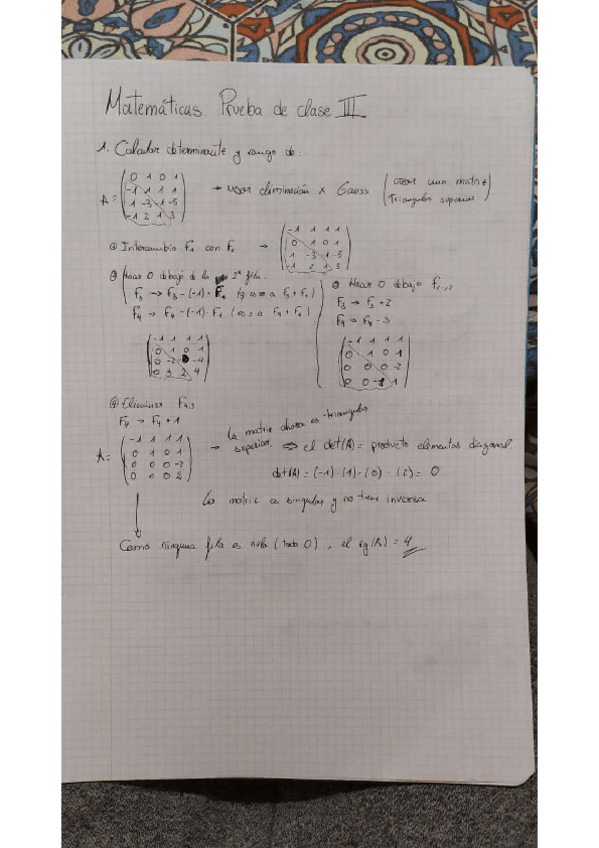 Matemáticas. Prueba de clase III
1. Calcular determinante y rango de:
A = ( 0 1 0 1
-1 1 1 1
1 -3 -1 -5
-1 2 1 3 ) → usar eliminación x Gauss (crear una matriz triangular superior)
① Intercambio F1 con F2 → ( -1 1 1 1
0 1 0 1
1 -3 -1 -5
-1 2 1 3 )
② Hacer 0 debajo de la 1ª fila.
F3 → F3 - (-1) · F1
F4 → F4 - (-1) · F1
( -1 1 1 1
0 1 0 1
0 -2 0 -4
0 3 2 4 )
③ Hacer 0 debajo F2,2
F3 → F3 + 2
F4 → F4 - 3
( -1 1 1 1
0 1 0 1
0 0 0 -2
0 0 -1 1 )
④ Eliminar F4,3
F4 → F4 + 1
A = ( -1 1 1 1
0 1 0 1
0 0 0 -2
0 0 0 2 ) → La matriz ahora es triangular
superior ⇒ el det(A) = producto elementos diagonal.
det(A) = (-1) · (1) · (0) · (2) = 0
La matriz es singular y no tiene inversa
Como ninguna fila es nula (todo 0), el rg(A) = 4